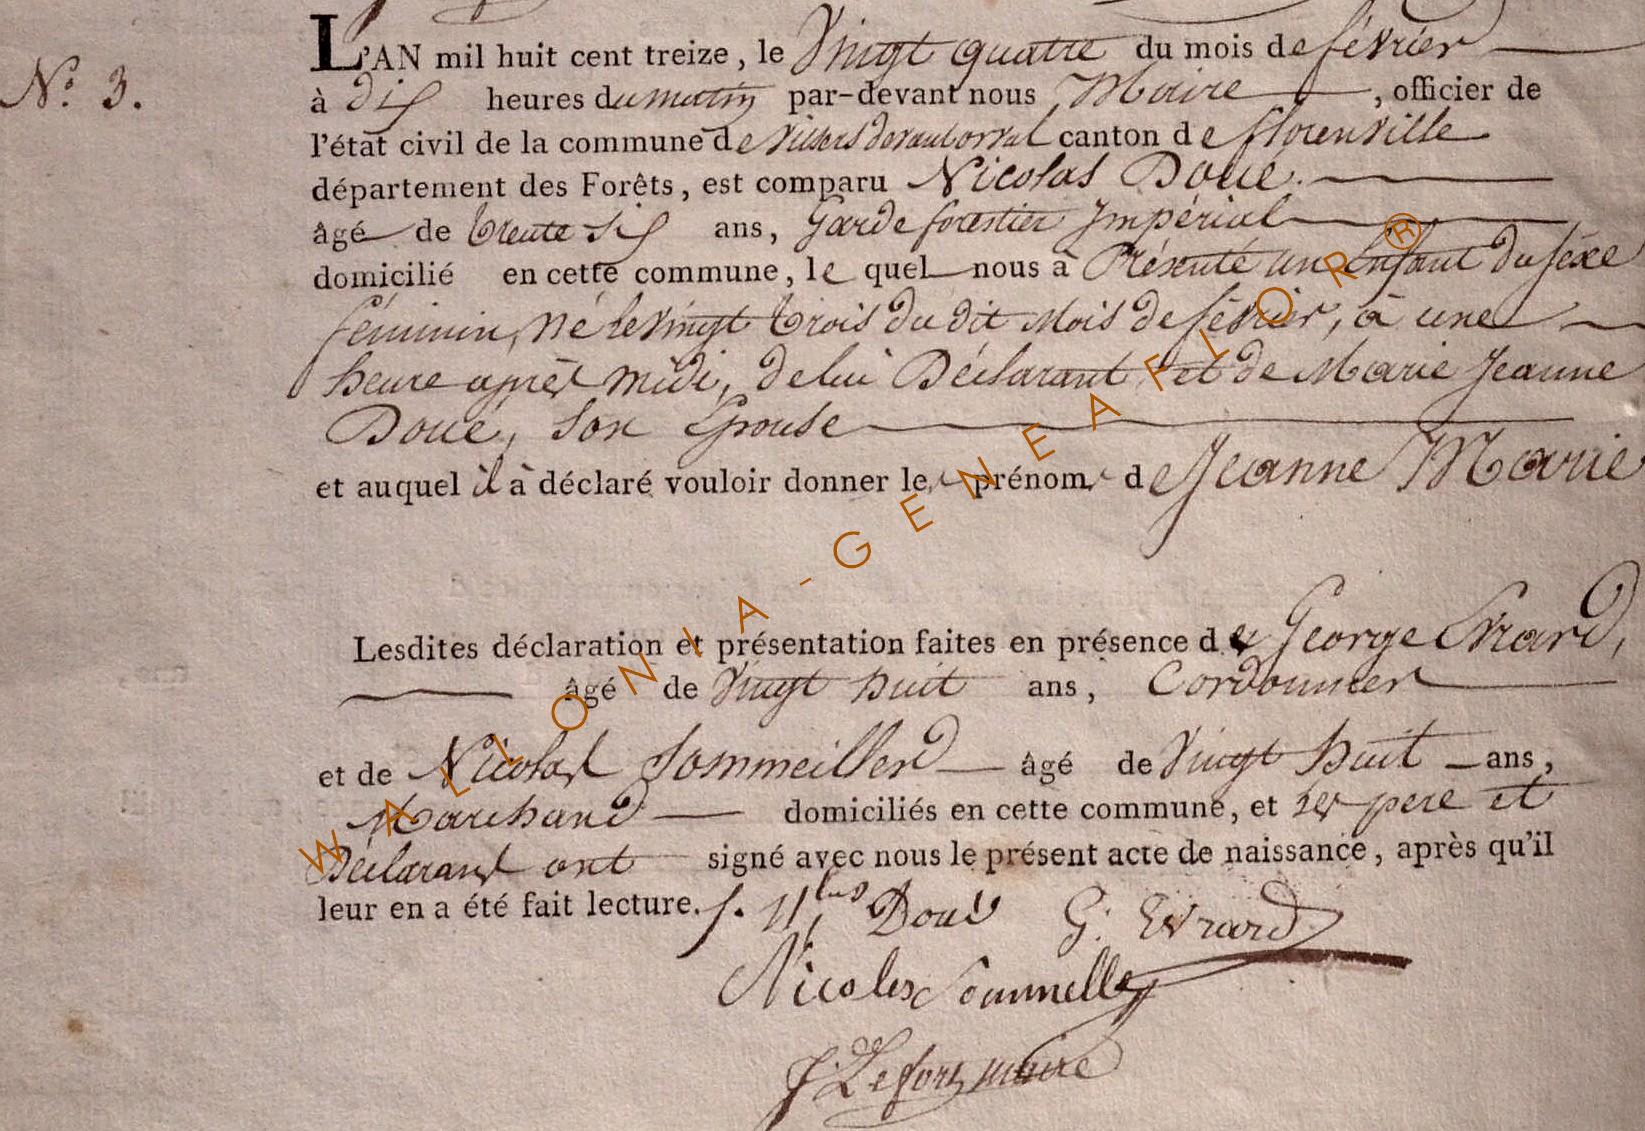 L'AN mil huit cent treize, le Vingt quatre du mois de février
N.o 3.
à dix heures du matin par-devant nous Maire, officier de
l'état civil de la commune de Villers devant orval canton de florenville
département des Forêts, est comparu Nicolas Doué.
âgé de trente Six ans, Garde forestier Impérial
domicilié en cette commune, le quel nous a Présenté un Enfant du séxe
féminin, né le vingt trois du dit Mois de février, à une
heure après midi, de lui Déclarant et de Marie Jeanne
Doué, Son Epouse
et auquel il à déclaré vouloir donner les prénoms de Jeanne Marie
Lesdites déclaration et présentation faites en présence de George Evrard,
âgé de Vingt huit ans, Cordonnier
et de Nicolas Sommeiller âgé de Vingt huit ans,
Marchand domiciliés en cette commune, et les pere et
Déclarant ont signé avec nous le présent acte de naissance, après qu'il
leur en a été fait lecture. Doué G. Evrard
Nicolas
J. Lefort maire
WALLONIA-GENEAFLORR®